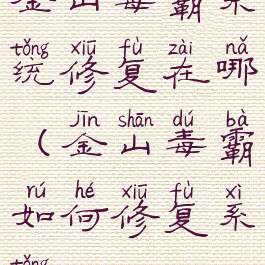 金山毒霸系
tǒng xiū fù zài nǎ
统修复在哪
jīn shān dú bà
（金山毒霸
rú hé xiū fù xì
如何修复系
tǒng